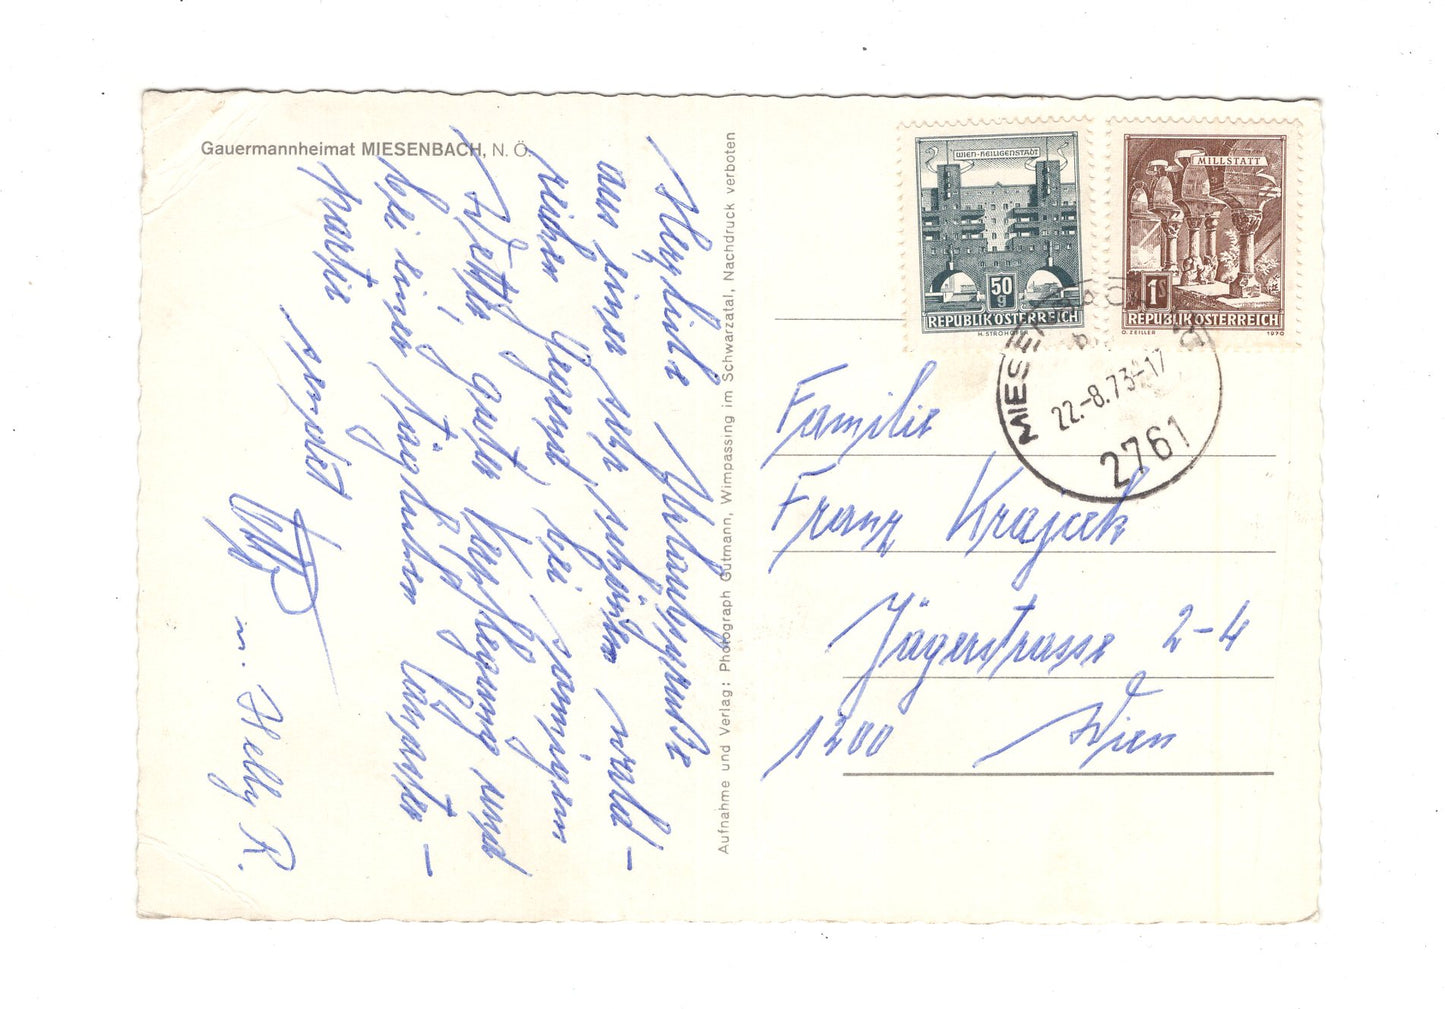 Gauermannheimat MIESENBACH, N. Ö.
Herzliche Urlaubsgrüße
aus einer sehr schönen wald-
reichen Gegend, bei sonnigem
Wetter, guter Verpflegung und
bei einer täglichen Tanzter-
partie
sendet
m. Helly R.
Aufnahme und Verlag: Photograph Gutmann, Wimpassing im Schwarzatal, Nachdruck verboten
WIEN-HEILIGENSTADT
50
g
REPUBLIK ÖSTERREICH
MILLSTATT
1S
REPUBLIK ÖSTERREICH
O. ZEILLER 1970
22.-8.73-17
2761
Familie
Franz Krajcek
Jägerstrasse 2-4
1200 Wien